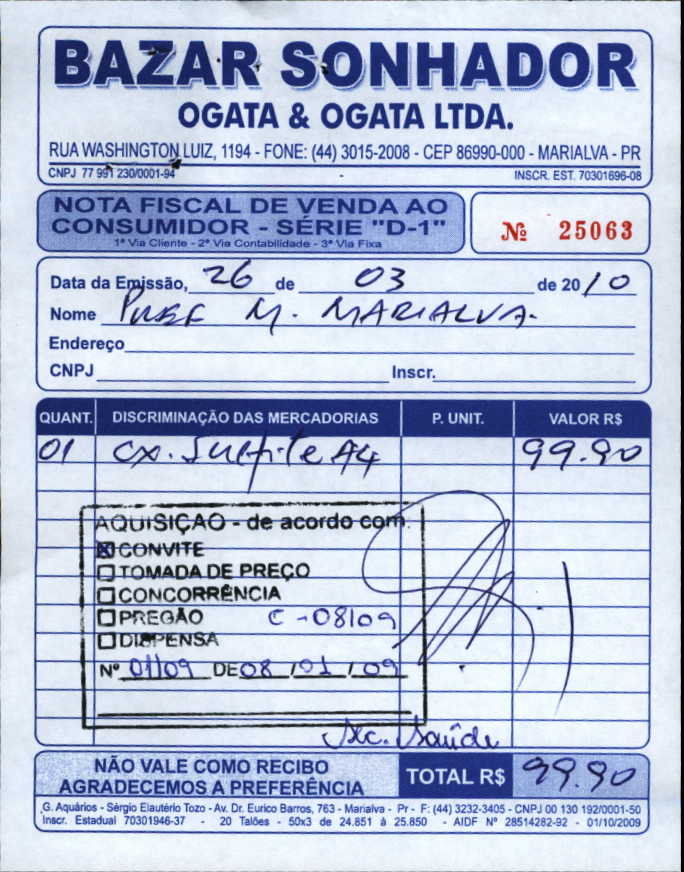 BAZAR SONHADOR
OGATA & OGATA LTDA.
RUA WASHINGTON LUIZ, 1194 - FONE: (44) 3015-2008 - CEP 86990-000 - MARIALVA - PR
CNPJ 77 991 230/0001-94 INSCR. EST. 70301696-08
NOTA FISCAL DE VENDA AO
CONSUMIDOR - SÉRIE "D-1"
1ª Via Cliente - 2ª Via Contabilidade - 3ª Via Fixa
Nº 25063
Data da Emissão, 26 de 03 de 2010
Nome PREF M. MARIALVA.
Endereço
CNPJ Inscr.
QUANT. DISCRIMINAÇÃO DAS MERCADORIAS P. UNIT. VALOR R$
01 cx. Sulfite A4 99.90
AQUISIÇÃO - de acordo com:
CONVITE
TOMADA DE PREÇO
CONCORRÊNCIA
PREGÃO C-08/09
DISPENSA
Nº 01/09 DE 08/01/09
Sec. Saúde
NÃO VALE COMO RECIBO
AGRADECEMOS A PREFERÊNCIA
TOTAL R$ 99.90
G. Aquários - Sérgio Elautério Tozo - Av. Dr. Eurico Barros, 763 - Marialva - Pr - F: (44) 3232-3405 - CNPJ 00 130 192/0001-50
Inscr. Estadual 70301946-37 - 20 Talões - 50x3 de 24.851 à 25.850 - AIDF Nº 28514282-92 - 01/10/2009